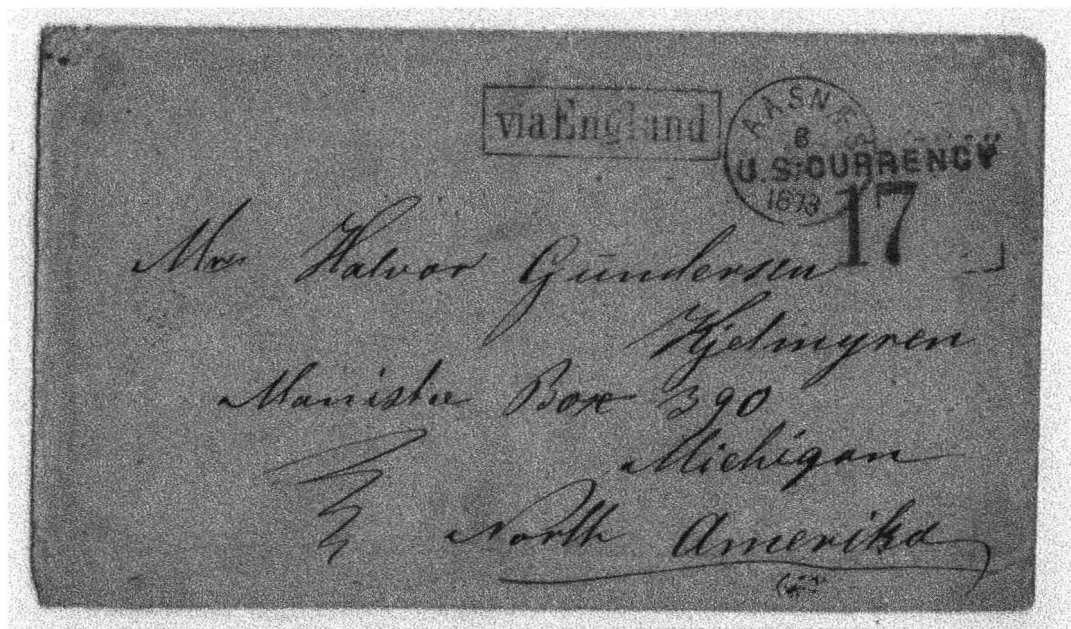 via England
AASNÆS
6
1873
U.S. CURRENCY
17
Mr Halvor Gundersen
Hjelmyren
Manistee Box 390
Michigan
North Amerika